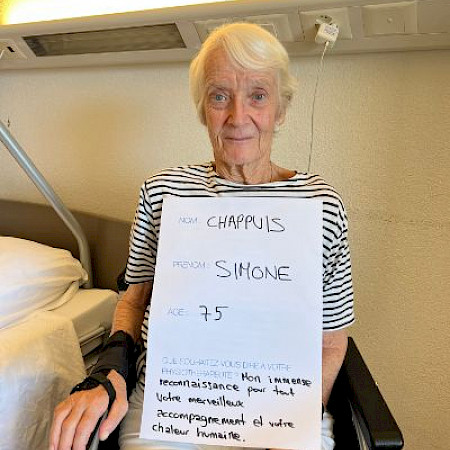 NOM: CHAPPUIS
PRÉNOM: SIMONE
AGE: 75
QUE SOUHAITEZ-VOUS DIRE A VOTRE
PHYSIOTHÉRAPEUTE? Mon immense
reconnaissance pour tout
votre merveilleux
accompagnement et votre
chaleur humaine.